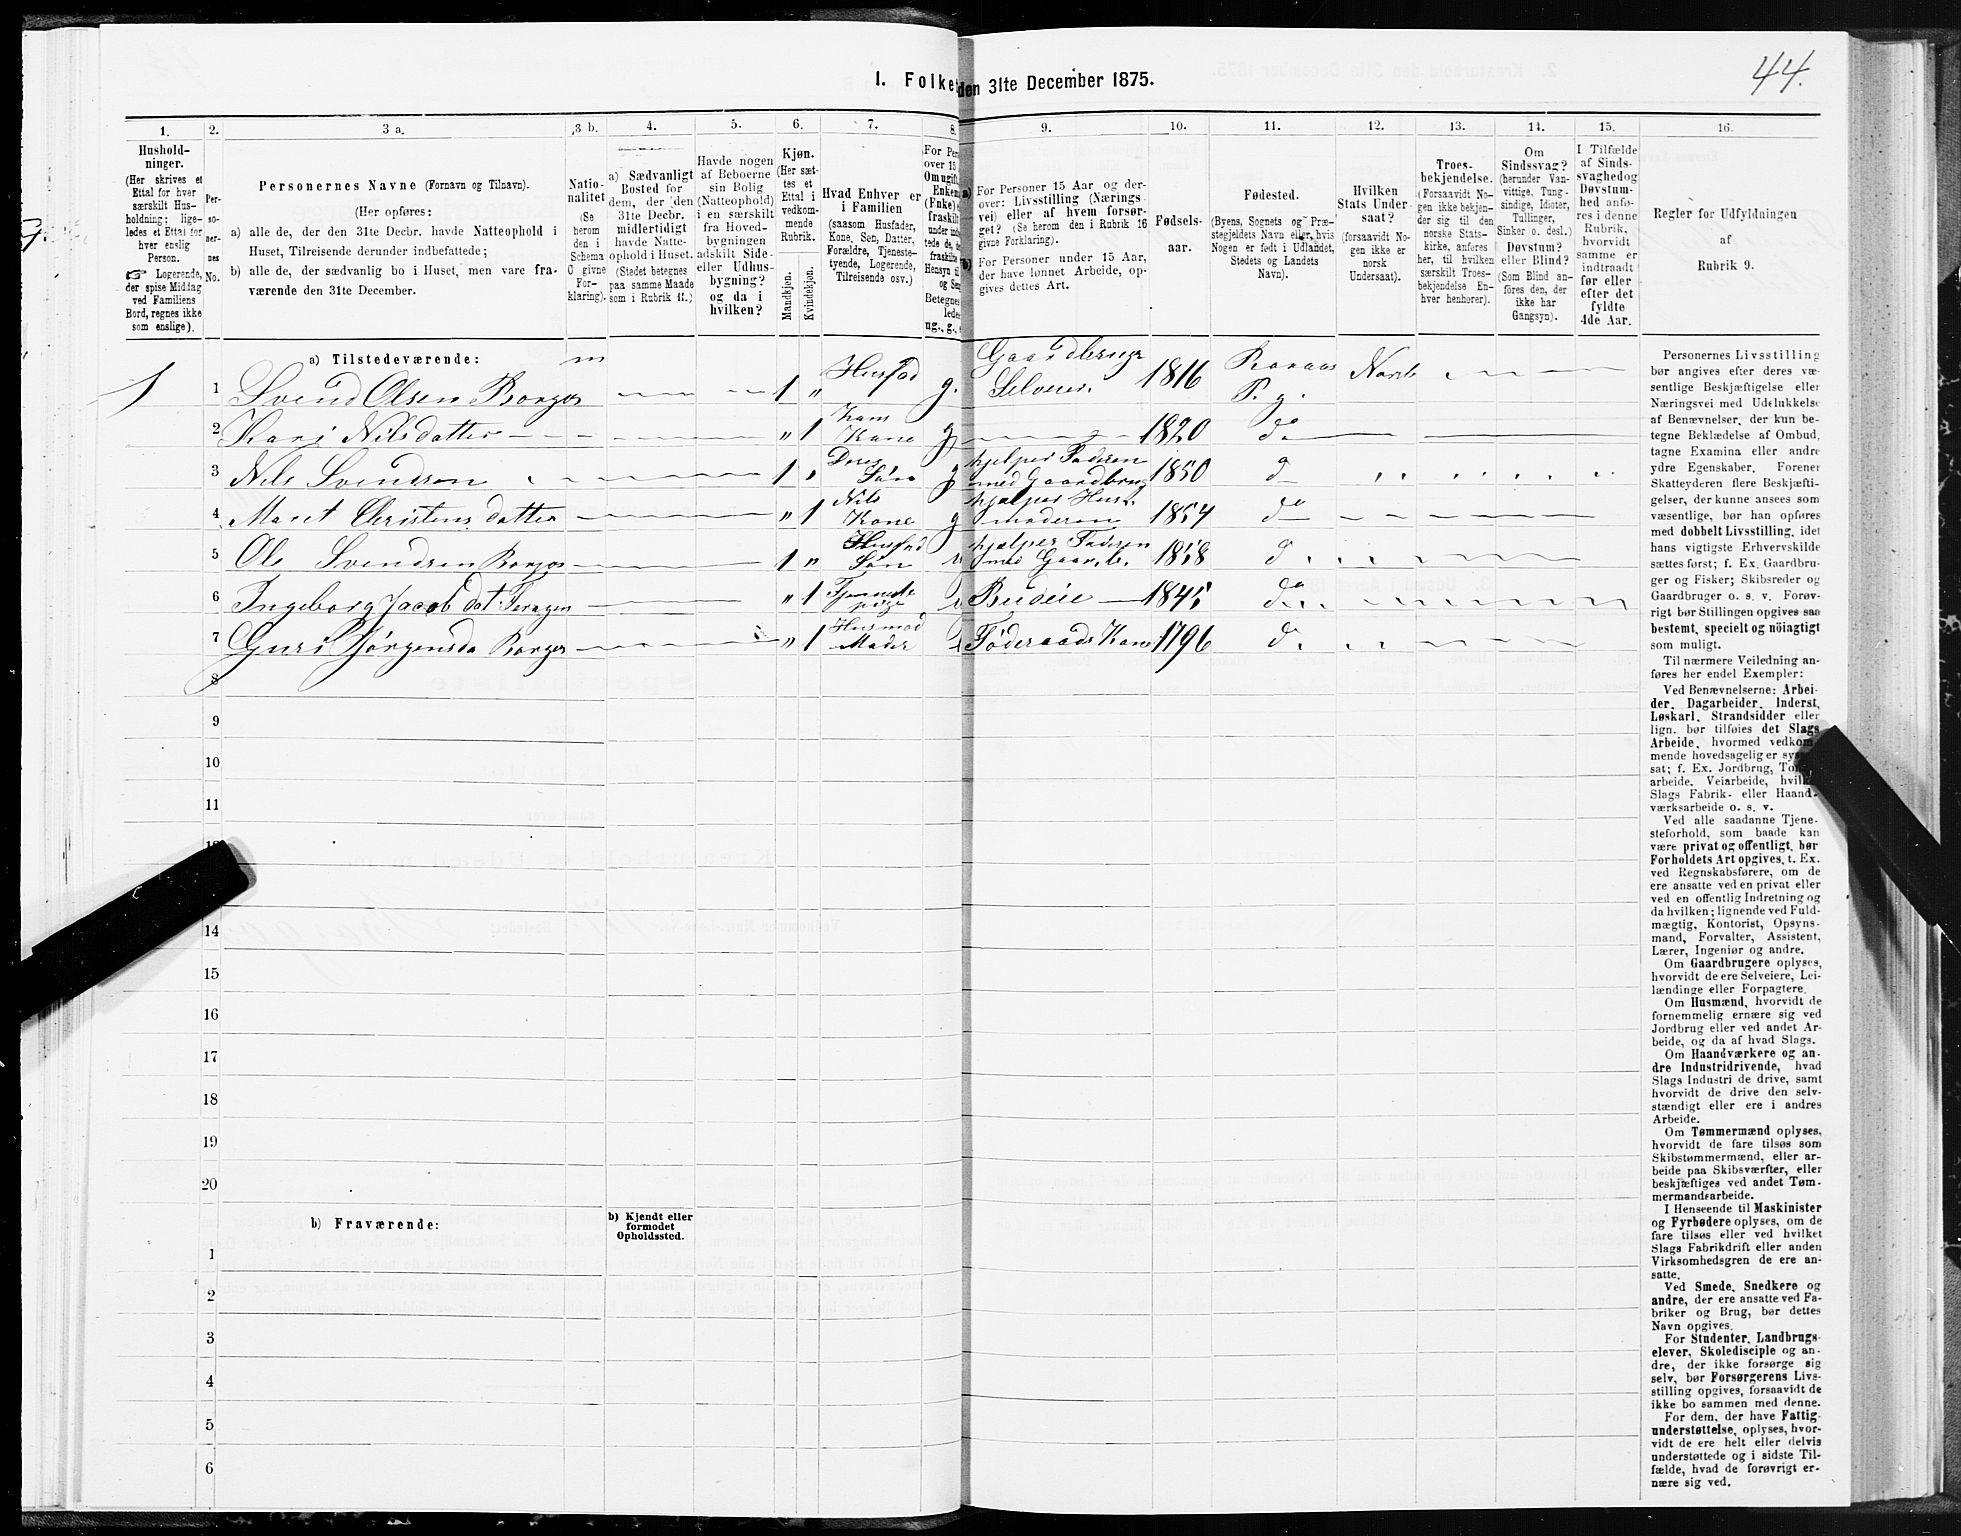 44.
I. Folke
den 31te December 1875.
1. 2. 3 a. 3 b. 4. 5. 6. 7. 8. 9. 10. 11. 12. 13. 14. 15. 16.
Hushold-
ninger.
(Her skrives et
Ettal for hver
særskilt Hus-
holdning; lige-
ledes et Ettal for
hver enslig
Person.
☞ Logerende,
der spise Middag
ved Familiens
Bord, regnes ikke
som enslige).
Per-
so-
ner-
nes
No.
Personernes Navne (Fornavn og Tilnavn).
(Her opføres:
a) alle de, der den 31te Decbr. havde Natteophold i
Huset, Tilreisende derunder indbefattede;
b) alle de, der sædvanlig bo i Huset, men vare fra-
værende den 31te December.
Natio-
nalitet
(Se
herom
den i
Schema
C givne
For-
klaring).
a) Sædvanligt
Bosted for
dem, der den
31te Decbr.
midlertidigt
havde Natte-
ophold i Huset.
(Stedet betegnes
paa samme Maade
som i Rubrik 11.)
Havde nogen
af Beboerne
sin Bolig
(Natteophold)
i en særskilt
fra Hoved-
bygningen
adskilt Side-
eller Udhus-
bygning?
og da i
hvilken?
Kjøn.
(Her sæt-
tes et
Ettal i
vedkom-
mende
Rubrik.
Mandkjøn.
Kvindekjøn.
Hvad Enhver er
i Familien
(saasom Husfader,
Kone, Søn, Datter,
Forældre, Tjeneste-
tyende, Logerende,
Tilreisende osv.)
For Per
over 15
Omugift
Enkem
(Enke) e
fraskilt
under ind
tede de, d
fraskilte
Hensyn til
og Sen
Betegnes
ledes
ug., g., e
a)
For Personer 15 Aar og der-
over: Livsstilling (Nærings-
vei) eller af hvem forsør-
get? (Se herom den i Rubrik 16
givne Forklaring).
b)
For Personer under 15 Aar,
der have lønnet Arbeide, op-
gives dettes Art.
Fødsels-
aar.
Fødested.
(Byens, Sognets og Præ-
stegjeldets Navn eller, hvis
Nogen er født i Udlandet,
Stedets og Landets
Navn).
Hvilken
Stats Under-
saat?
(forsaavidt No-
gen ikke er
norsk
Undersaat).
Troes-
bekjendelse.
(Forsaavidt No-
gen ikke bekjen-
der sig til den
norske Stats-
kirke, anføres
her, til hvilken
særskilt Troes-
bekjendelse En-
hver henhører).
Om
Sindssvag?
(herunder Van-
vittige, Tung-
sindige, Idioter,
Tullinger,
Sinker o. desl.)
Døvstum?
eller Blind?
(Som Blind an-
føres den, der
ikke har
Gangsyn).
I Tilfælde
af Sinds-
svaghed og
Døvstum-
hed anfø-
res i denne
Rubrik,
hvorvidt
samme er
indtraadt
før eller
efter det
fyldte
4de Aar.
Regler for Udfyldningen
af
Rubrik 9.
a) Tilstedeværende:
1 1 Svend Olsen Borgos 1 „ Husfad g. Gaardbruger Selveier. 1816 P. g. Norsk
2 Kari Nilsdatter „ 1 Hans Kone g 1820 do
3 Nils Svendsen 1 „ Deres Søn g hjelper Faderen med Gaardbrug 1850 d
4 Maret Christensdatter „ 1 Nils Kone g hjælper Husmoderen 1854 do
5 Ole Svendsen Borgos 1 „ Husfad Søn hjælper Faderen med Gaardb. 1858 d
6 Ingeborg Jacobdat „ 1 Tjenestepige Budeie 1845 do
7 Guri Jørgensda Borgos „ 1 Husmod Moder Føderaads Kone 1796 d
8
9
10
11
14
15
16
17
18
19
20
b) Fraværende:
b) Kjendt eller
formodet
Opholdssted.
1
2
3
4
5
6
Personernes Livsstilling
bør angives efter deres væ-
sentlige Beskjæftigelse eller
Næringsvei med Udelukkelse
af Benævnelser, der kun be-
tegne Beklædelse af Ombud,
tagne Examina eller andre
ydre Egenskaber. Forener
Skatteyderen flere Beskjæfti-
gelser, der kunne ansees som
væsentlige, bør han opføres
med dobbelt Livsstilling, idet
hans vigtigste Erhvervskilde
sættes først; f. Ex. Gaardbru-
ger og Fisker; Skibsreder og
Gaardbruger o. s. v. Forøv-
rigt bør Stillingen opgives saa
bestemt, specielt og nöiagtigt
som muligt.
Til nærmere Veiledning an-
føres her endel Exempler:
Ved Benævnelserne: Arbei-
der, Dagarbeider, Inderst,
Løskarl, Strandsidder eller
lign. bør tilføies det Slags
Arbeide, hvormed vedkom-
mende hovedsagelig er syssel-
sat; f. Ex. Jordbrug,
arbeide, Veiarbeide,
Slags Fabrik- eller Haand-
værksarbeide o. s. v.
Ved alle saadanne Tjene-
steforhold, som baade kan
være privat og offentligt, bør
Forholdets Art opgives, t. Ex.
ved Regnskabsførere, om de
ere ansatte ved en privat eller
ved en offentlig Indretning og
da hvilken; lignende ved Fuld-
mægtig, Kontorist, Opsyns-
mand, Forvalter, Assistent,
Lærer, Ingeniør og andre.
Om Gaardbrugere oplyses,
hvorvidt de ere Selveiere, Lei-
lændinge eller Forpagtere.
Om Husmænd, hvorvidt de
fornemmelig ernære sig ved
Jordbrug eller ved andet Ar-
beide, og da af hvad Slags.
Om Haandværkere og an-
dre Industridrivende, hvad
Slags Industri de drive, samt
hvorvidt de drive den selv-
stændigt eller ere i andres
Arbeide.
Om Tømmermænd oplyses,
hvorvidt de fare tilsøs som
Skibstømmermænd, eller ar-
beide paa Skibsværfter, eller
beskjæftiges ved andet Tøm-
mermandsarbeide.
I Henseende til Maskinister
og Fyrbødere oplyses, om de
fare tilsøs eller ved hvilket
Slags Fabrikdrift eller anden
Virksomhedsgren de ere an-
satte.
Ved Smede, Snedkere og
andre, der ere ansatte ved Fa-
briker og Brug, bør dettes
Navn opgives.
For Studenter, Landbrugs-
elever, Skoledisciple og an-
dre, der ikke forsørge sig
selv, bør Forsørgerens Livs-
stilling opgives, forsaavidt de
ikke bo sammen med denne.
For dem, der have Fattig-
understøttelse, oplyses, hvor-
vidt de ere helt eller delvis
understøttede og i sidste Til-
fælde, hvad de forøvrigt er-
nære sig ved.